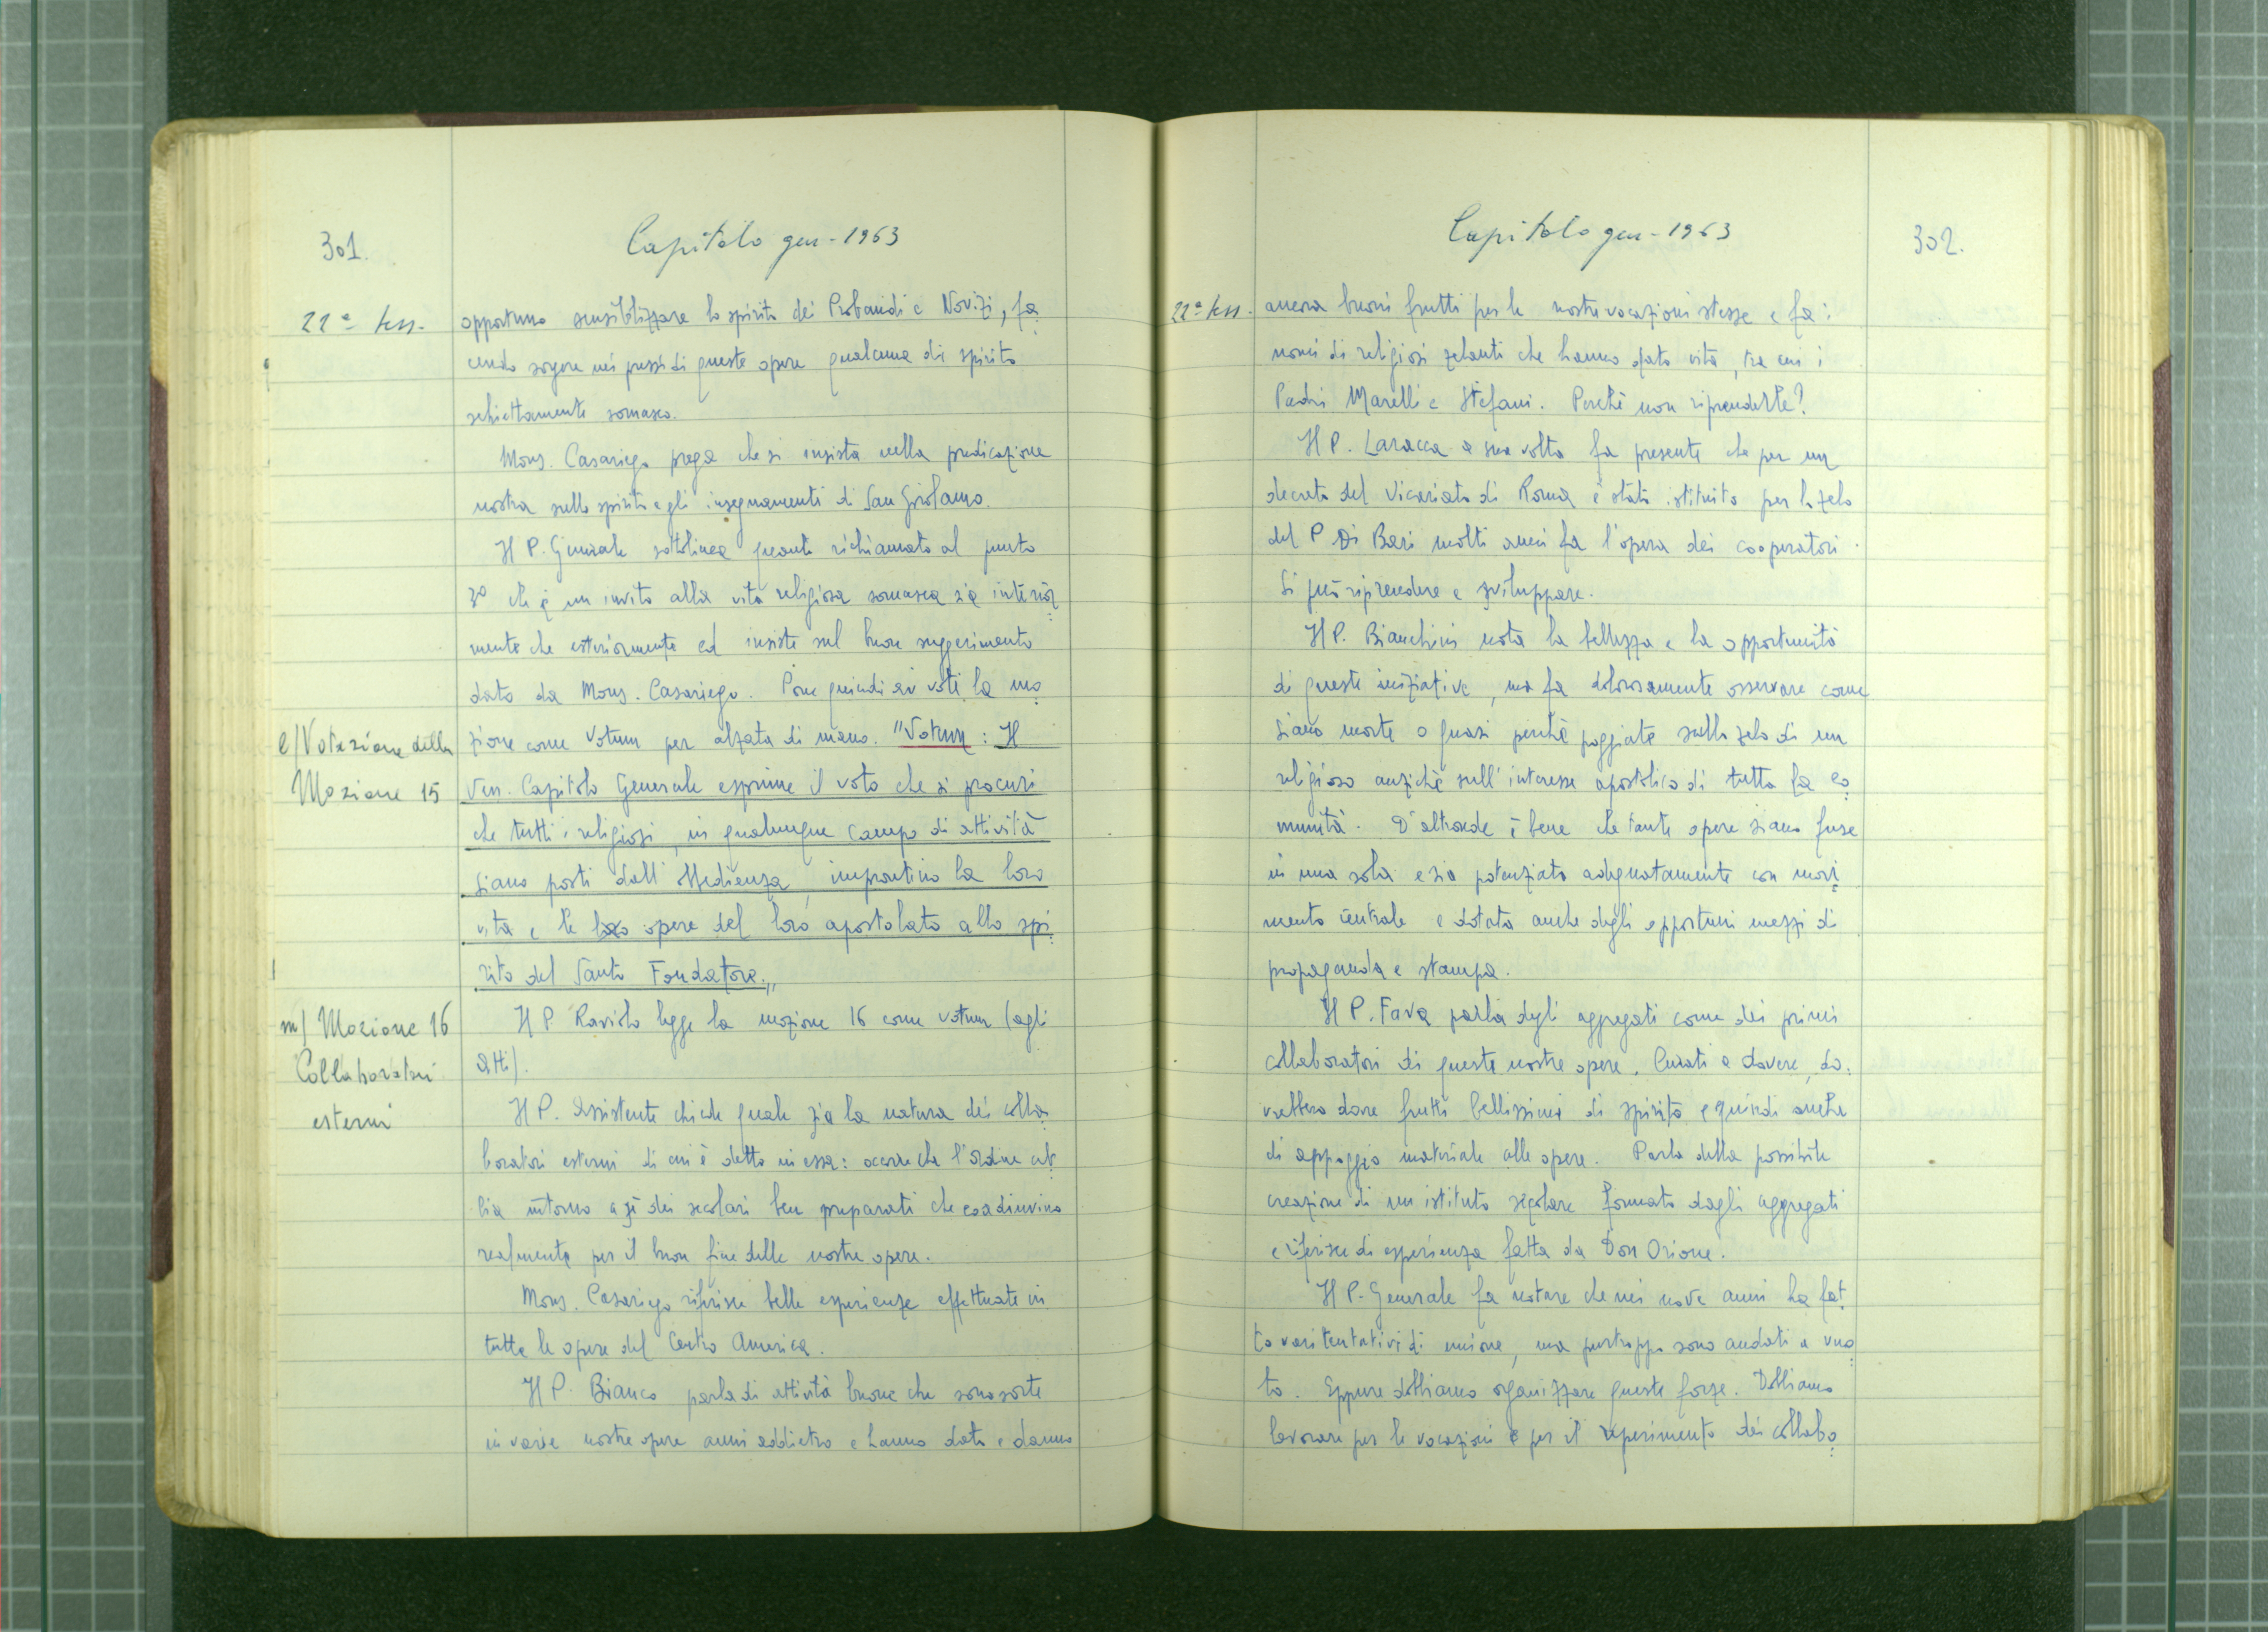 301.
Capitolo gen - 1963
22ª sess.
opportuno sensibilizzare lo spirito dei Probandi e Novizi, fa=
cendo sorgere nei pressi di queste opere qualcuna di spirito
schiettamente somasco.
Mons. Casariego prega che si insista nella predicazione
nostra sullo spirito e gli insegnamenti di San Girolamo.
Il P. Generale sottolinea quanto richiamato al punto
3º che è un invito alla vita religiosa somasca sia interior=
mente che esteriormente ed insiste sul buon suggerimento
dato da Mons. Casariego. Pone quindi ai voti la mo=
l/ Votazione della
Mozione 15
zione come Votum per alzata di mano. "Votum: Il
Ven. Capitolo Generale esprime il voto che si procuri
che tutti i religiosi, in qualunque campo di attività
siano posti dall'obbedienza, improntino la loro
vita e le loro opere del loro apostolato allo spi=
rito del Santo Fondatore."
m/ Mozione 16
Collaboratori
esterni
Il P. Raviolo legge la mozione 16 come votum (agli
atti).
Il P. Assistente chiede quale sia la natura dei colla=
boratori esterni di cui è detto in essa: occorre che l'Ordine ab=
bia intorno a sè dei secolari ben preparati che coadiuvino
realmente per il buon fine delle nostre opere.
Mons. Casariego riferisce belle esperienze effettuate in
tutte le opere del Centro America.
Il P. Bianco parla di attività buone che sono sorte
in varie nostre opere anni addietro e hanno dato e danno
Capitolo gen - 1963
302.
22ª sess.
ancora buoni frutti per le nostre vocazioni stesse e fa i
nomi di religiosi zelanti che hanno dato vita, tra cui i
Padri Marelli e Stefani. Perchè non riprenderle?
Il P. Laracca a sua volta fa presente che per un
decreto del Vicariato di Roma è stata istituita per lo zelo
del P. Di Bari molti anni fa l'opera dei cooperatori.
Si può riprendere e sviluppare.
Il P. Bianchini nota la bellezza e la opportunità
di queste iniziative, ma fa dolorosamente osservare come
siano morte o quasi perchè poggiate sullo zelo di un
religioso anzichè sull'interesse apostolico di tutta la co=
munità. D'altronde è bene che tante opere siano fuse
in una sola e sia potenziata adeguatamente con movi=
mento centrale e dotata anche degli opportuni mezzi di
propaganda e stampa.
Il P. Fava parla degli aggregati come dei primi
collaboratori di queste nostre opere. Curati a dovere, do=
vrebbero dare frutti bellissimi di spirito e quindi anche
di appoggio materiale alle opere. Parla della possibile
creazione di un istituto secolare formato dagli aggregati
e riferisce di esperienza fatta da Don Orione.
Il P. Generale fa notare che nei nove anni ha fat=
to vari tentativi di unione, ma purtroppo sono andati a vuo=
to. Eppure dobbiamo organizzare queste forze. Dobbiamo
lavorare per le vocazioni e per il reperimento dei collabo=